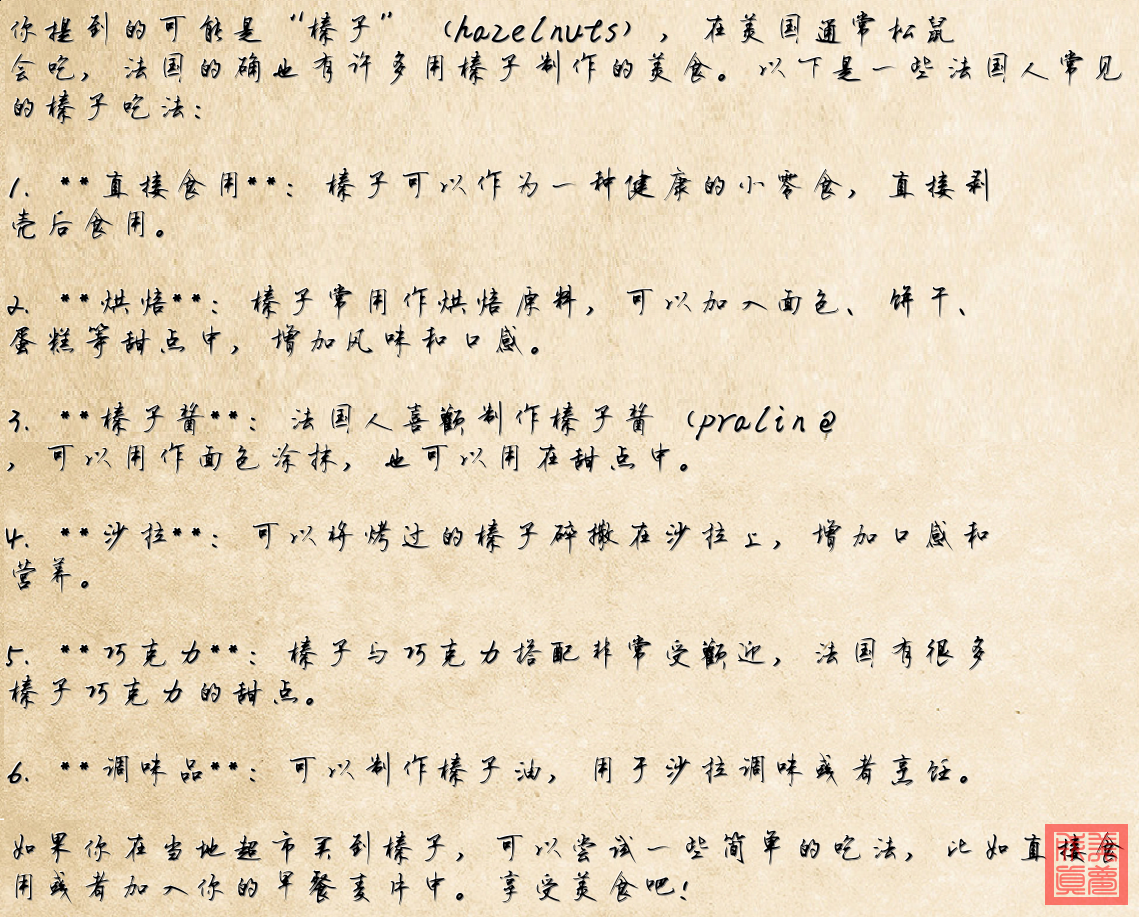 你提到的可能是“榛子”（hazelnuts），在美国通常松鼠
会吃，法国的确也有许多用榛子制作的美食。以下是一些法国人常见
的榛子吃法：
1. **直接食用**：榛子可以作为一种健康的小零食，直接剥
壳后食用。
2. **烘焙**：榛子常用作烘焙原料，可以加入面包、饼干、
蛋糕等甜点中，增加风味和口感。
3. **榛子酱**：法国人喜欢制作榛子酱（pralin@
，可以用作面包涂抹，也可以用在甜点中。
4. **沙拉**：可以将烤过的榛子碎撒在沙拉上，增加口感和
营养。
5. **巧克力**：榛子与巧克力搭配非常受欢迎，法国有很多
榛子巧克力的甜点。
6. **调味品**：可以制作榛子油，用于沙拉调味或者烹饪。
如果你在当地超市买到榛子，可以尝试一些简单的吃法，比如直接食
用或者加入你的早餐麦片中。享受美食吧！